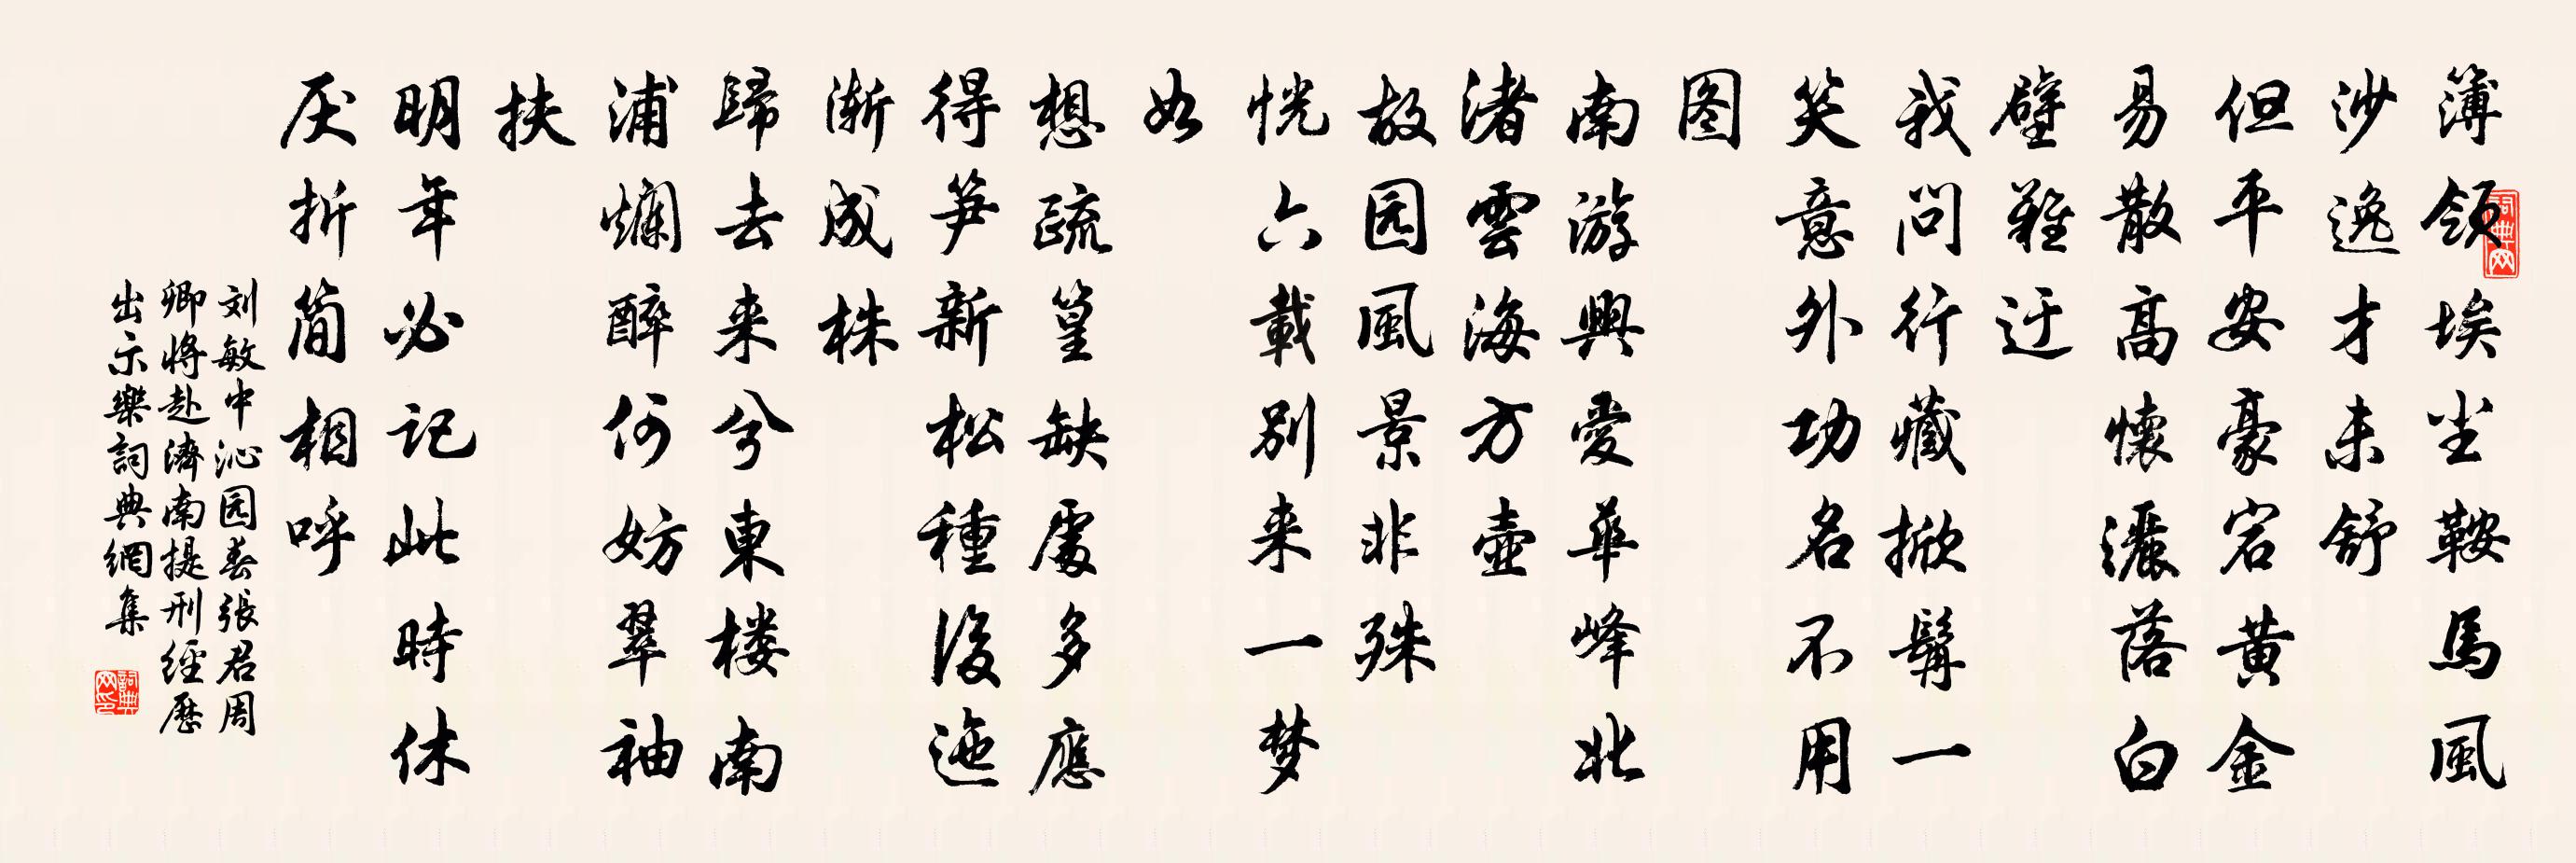 簿领埃尘鞍馬風
沙逸才未舒
但平安豪宕黄金
易散高懷灑落白
璧難迂
我問行藏掀髯一
笑意外功名不用
图
南游興愛華峰北
渚雲海方壺
故园風景非殊
恍六載别来一梦
如
想疏篁缺處多應
得笋新松種後迤
渐成株
歸去来兮東楼南
浦爛醉何妨翠袖
扶
明年必记此時休
厌折简相呼
刘敏中沁园春張君周
卿将赴濟南提刑經歷
出示樂詞典網集
詞典网
詞典网印